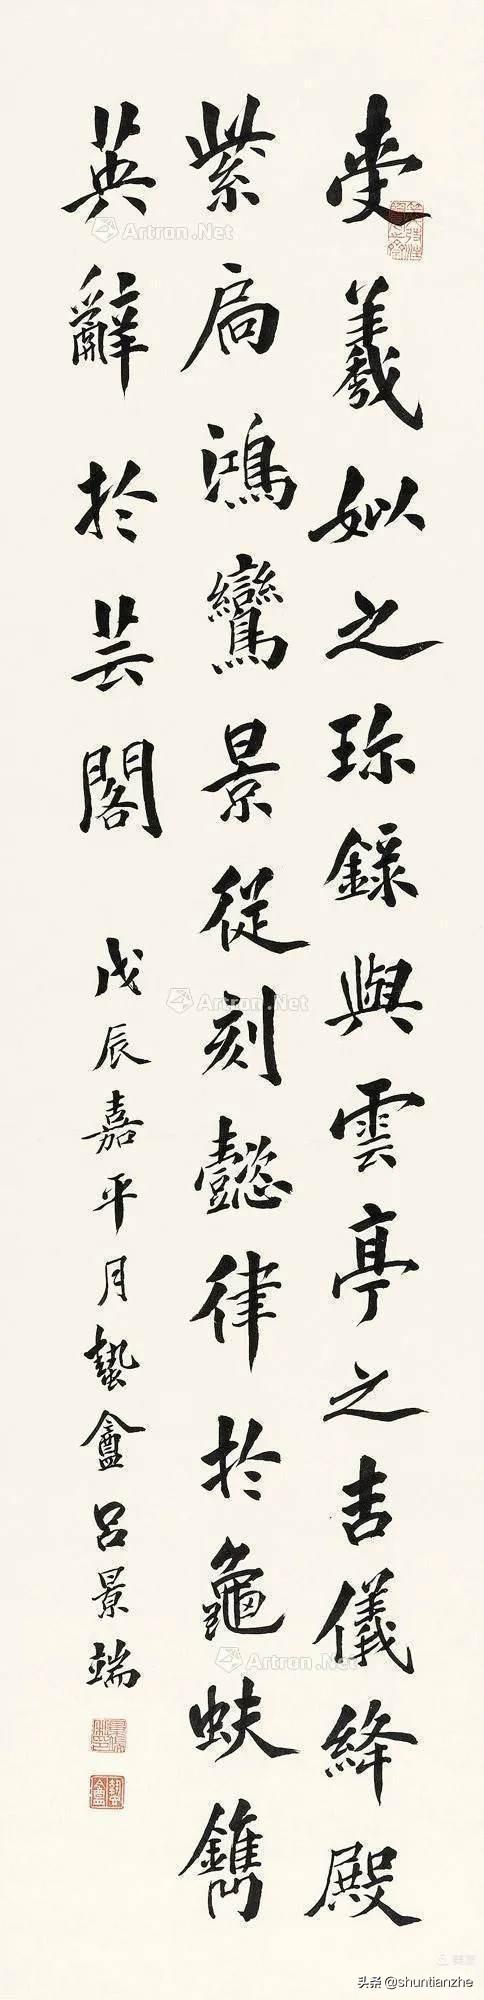 羲姒之珎録與雲亭之吉儀絳殿
紫扃鴻鸞景從刻懿律於龜蚨鐫
英辭於芸閣 戊辰嘉平月蟄盦呂景端
Artron.Net
Artron.Net
Artron.Net
头条 @shuntianzhe